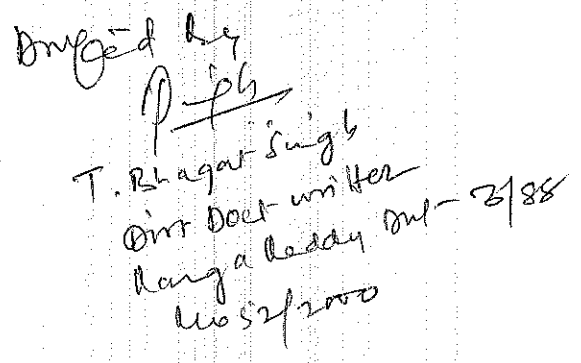 Drafted by
T. Bhagat Singh
Doct writter
Ranga Reddy Dist - 3/88
No 52/2000